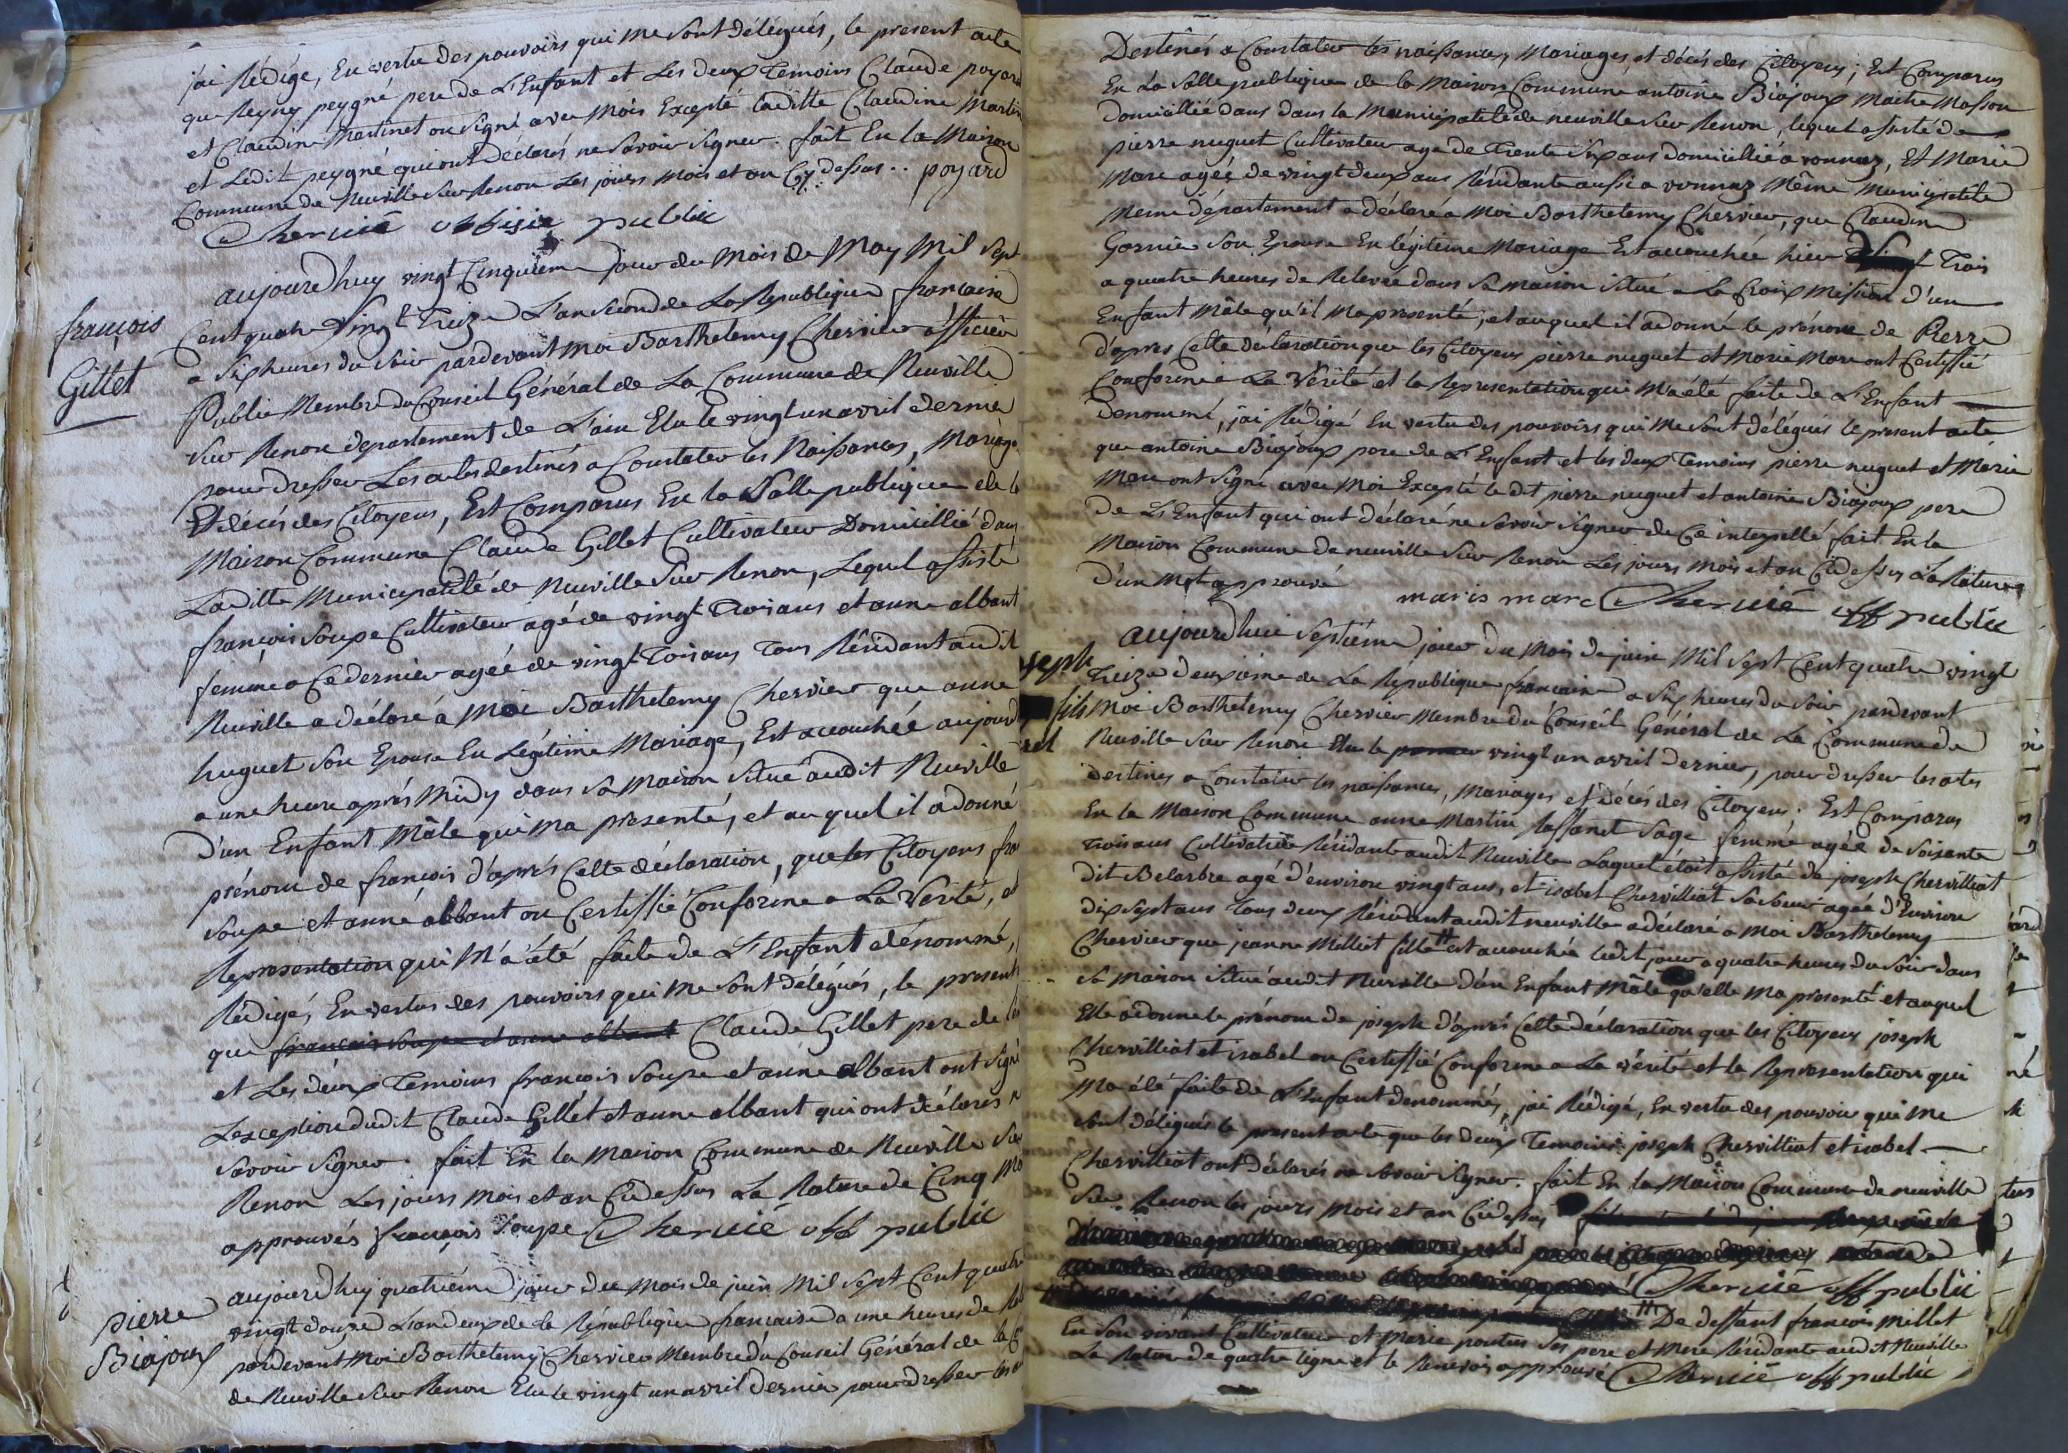 j'ai Rédigé, En vertu des pouvoirs qui me sont délégués, le present acte
que Reyne peygné pere de L'Enfant et Les deux Temoins Claude poyard
et Claudine Martinet on signé avec Mois Excepté laditte Claudine Martin
et Ledit peygné qui ont déclarés ne savoir signer. fait En la Maison
Commune de Neuville sur Renon Les jours Mois et an Cy dessus.. poyard
Cherviè offisie public
françois
Gillet
aujourdhuy vingt Cinquieme jour du Mois de May Mil sept
Cent quatre vingt Treize L'an second de La Republique francaise
a six heures du soir pardevant moi Barthelemy Chervier officier
Public Membre du Conseil Général de La Commune de Neuville
sur Renon departement de L'ain Elu le vingt un avril dernier
pour dresser Les actes destinés a Constater les Naissances, Mariage
Et décés des Citoyens, Est Comparus En la Salle publique de la
Maison Commune Claude Gillet Cultivateur Domicillié dans
Laditte Municipalité de Neuville sur Renon, Lequel assisté
françois soupe Cultivateur agé de vingt Trois ans et anne albant
femme a Ce dernier agée de vingt Trois ans Tous Résidant audit
Neuville a déclaré à Moi Barthelemy Chervier que anne
huguet son Epouse En Légitime Mariage, Est accouchée aujourd
a une heure aprés Midy dans sa Maison située audit Neuville
d'un Enfant Mâle qui ma presenté, et au quel il a donné
prénom de françois d'aprés Cette déclaration, que les Citoyens fra
soupe et anne albant on Certiffié Conforme a La Verité, et
Representation qui M'a été faite de L'Enfant dénommé,
Rédigé, En vertus des pouvoirs qui me sont délégués, le present
que francois soupe et anne albant Claude Gillet pere de
et Les deux Temoins françois soupe et anne albant ont signé
Lexception dudit Claude Gillet et anne albant qui ont déclarés
savoir signer. fait En la Maison Commune de Neuville sur
Renon Les jours Mois et an Cidessus La Rature de Cinq Mo
approuvés françois soupe Cherviè off public
pierre
Biajoux
aujourdhuy quatrième jour du Mois de juin Mil sept Cent quatre
vingt douze L'an deux de la République francaise a une heures de
pardevant Moi Barthelemy Chervier Membre du Conseil Général de la
de Neuville sur Renon Elu le vingt un avril dernier pour dresser les
Destinés a Constater les naissances, Mariages, et décés des Citoyens; Est Comparus
En La Salle publique de la Maison Commune antoine Biajoux Maitre Masson
domicillié dans dans la Municipalité de neuville sur Renon, lequel assisté de
pierre nuguet Cultivateur age de Trente six ans domicillié a vonnaz, Et Marie
Marc agée de vingt deux ans Résidante aussi a vonnaz Même Municipalité
Meme département a déclaré a Moi Barthelemy Chervier, que Claudine
Garnie son Epouse En légitime Mariage Est accouchée hier Trois
a quatre heures de Relevée dans sa maison située a La Croix Mission d'un
Enfant Mâle qu'il Ma presenté, et auquel il a donné le prénom de Pierre
d'apres Cette déclaration que les Citoyens pierre nuguet et Marie Marc ont Certiffié
Conforme a La Vérité et la Representation qui M'a été faite de L'Enfant
denommé, j'ai Rédigé En vertu des pouvoirs qui Me sont délégués le present acte
que antoine Biajoux pere de L'Enfant et les deux Temoins pierre nuguet et Marie
Marc ont signé avec Moi Excepté le dit pierre nuguet et antoine Biajoux pere
de L'Enfant qui ont déclaré ne savoir signer de Ce interpellé fait En la
Maison Commune de neuville sur Renon Les jours Mois et an Cidessus a La Rature
d'un Mot approuvé maris marc Cherviè off public
seph
fils
aujourdhui septiéme jour du Mois de juin Mil sept Cent quatre vingt
Treize deuxième de La République francaise a six heures du soir pardevant
Moi Barthelemy Chervier Membre du Conseil Général de La Commune de
Neuville sur Renon Elu le vingt un avril dernier, pour dresser les actes
destines a Constater les naissances, Mariages et décés des Citoyens; Est Comparus
En la Maison Commune anne Martin sage femme agée de soixante
Trois ans Cultivatrice Résidante audit Neuville Laquel étoit assisté de joseph Chervilliat
dit Belarbre agé d'environ vingt ans, et isabel Chervilliat sa soeur agée d'Environ
dix sept ans Tous deux Résidant audit neuville a déclaré a Moi Barthelemy
Chervier que jeanne Milliet fille tt est accouchée ledit jour a quatre heures du soir dans
sa Maison située audit Neuville d'un Enfant Mâle qu'elle Ma presenté et auquel
Elle a donné le prénom de joseph d'aprés Cette déclaration que les Citoyens joseph
Chervilliat et isabel on Certiffié Conforme a La vérité et la Representation qui
Ma été faite de L'Enfant dénommés, j'ai Rédigé, En vertu des pouvoir qui me
sont délégués le present acte que les deux Temoins joseph Chervilliat et isabel
Chervilliat ont déclarés ne savoir signer. fait En la Maison Commune de neuville
sur Renon les jours Mois et an Cidessus
Cherviè off public
tt De deffant françois Millet
En son vivant Cultivateur et Marie poutus ses pere et Mere Résidante audit Neuville
La Rature de quatre ligne et le Renvois approuvé Cherviè off public